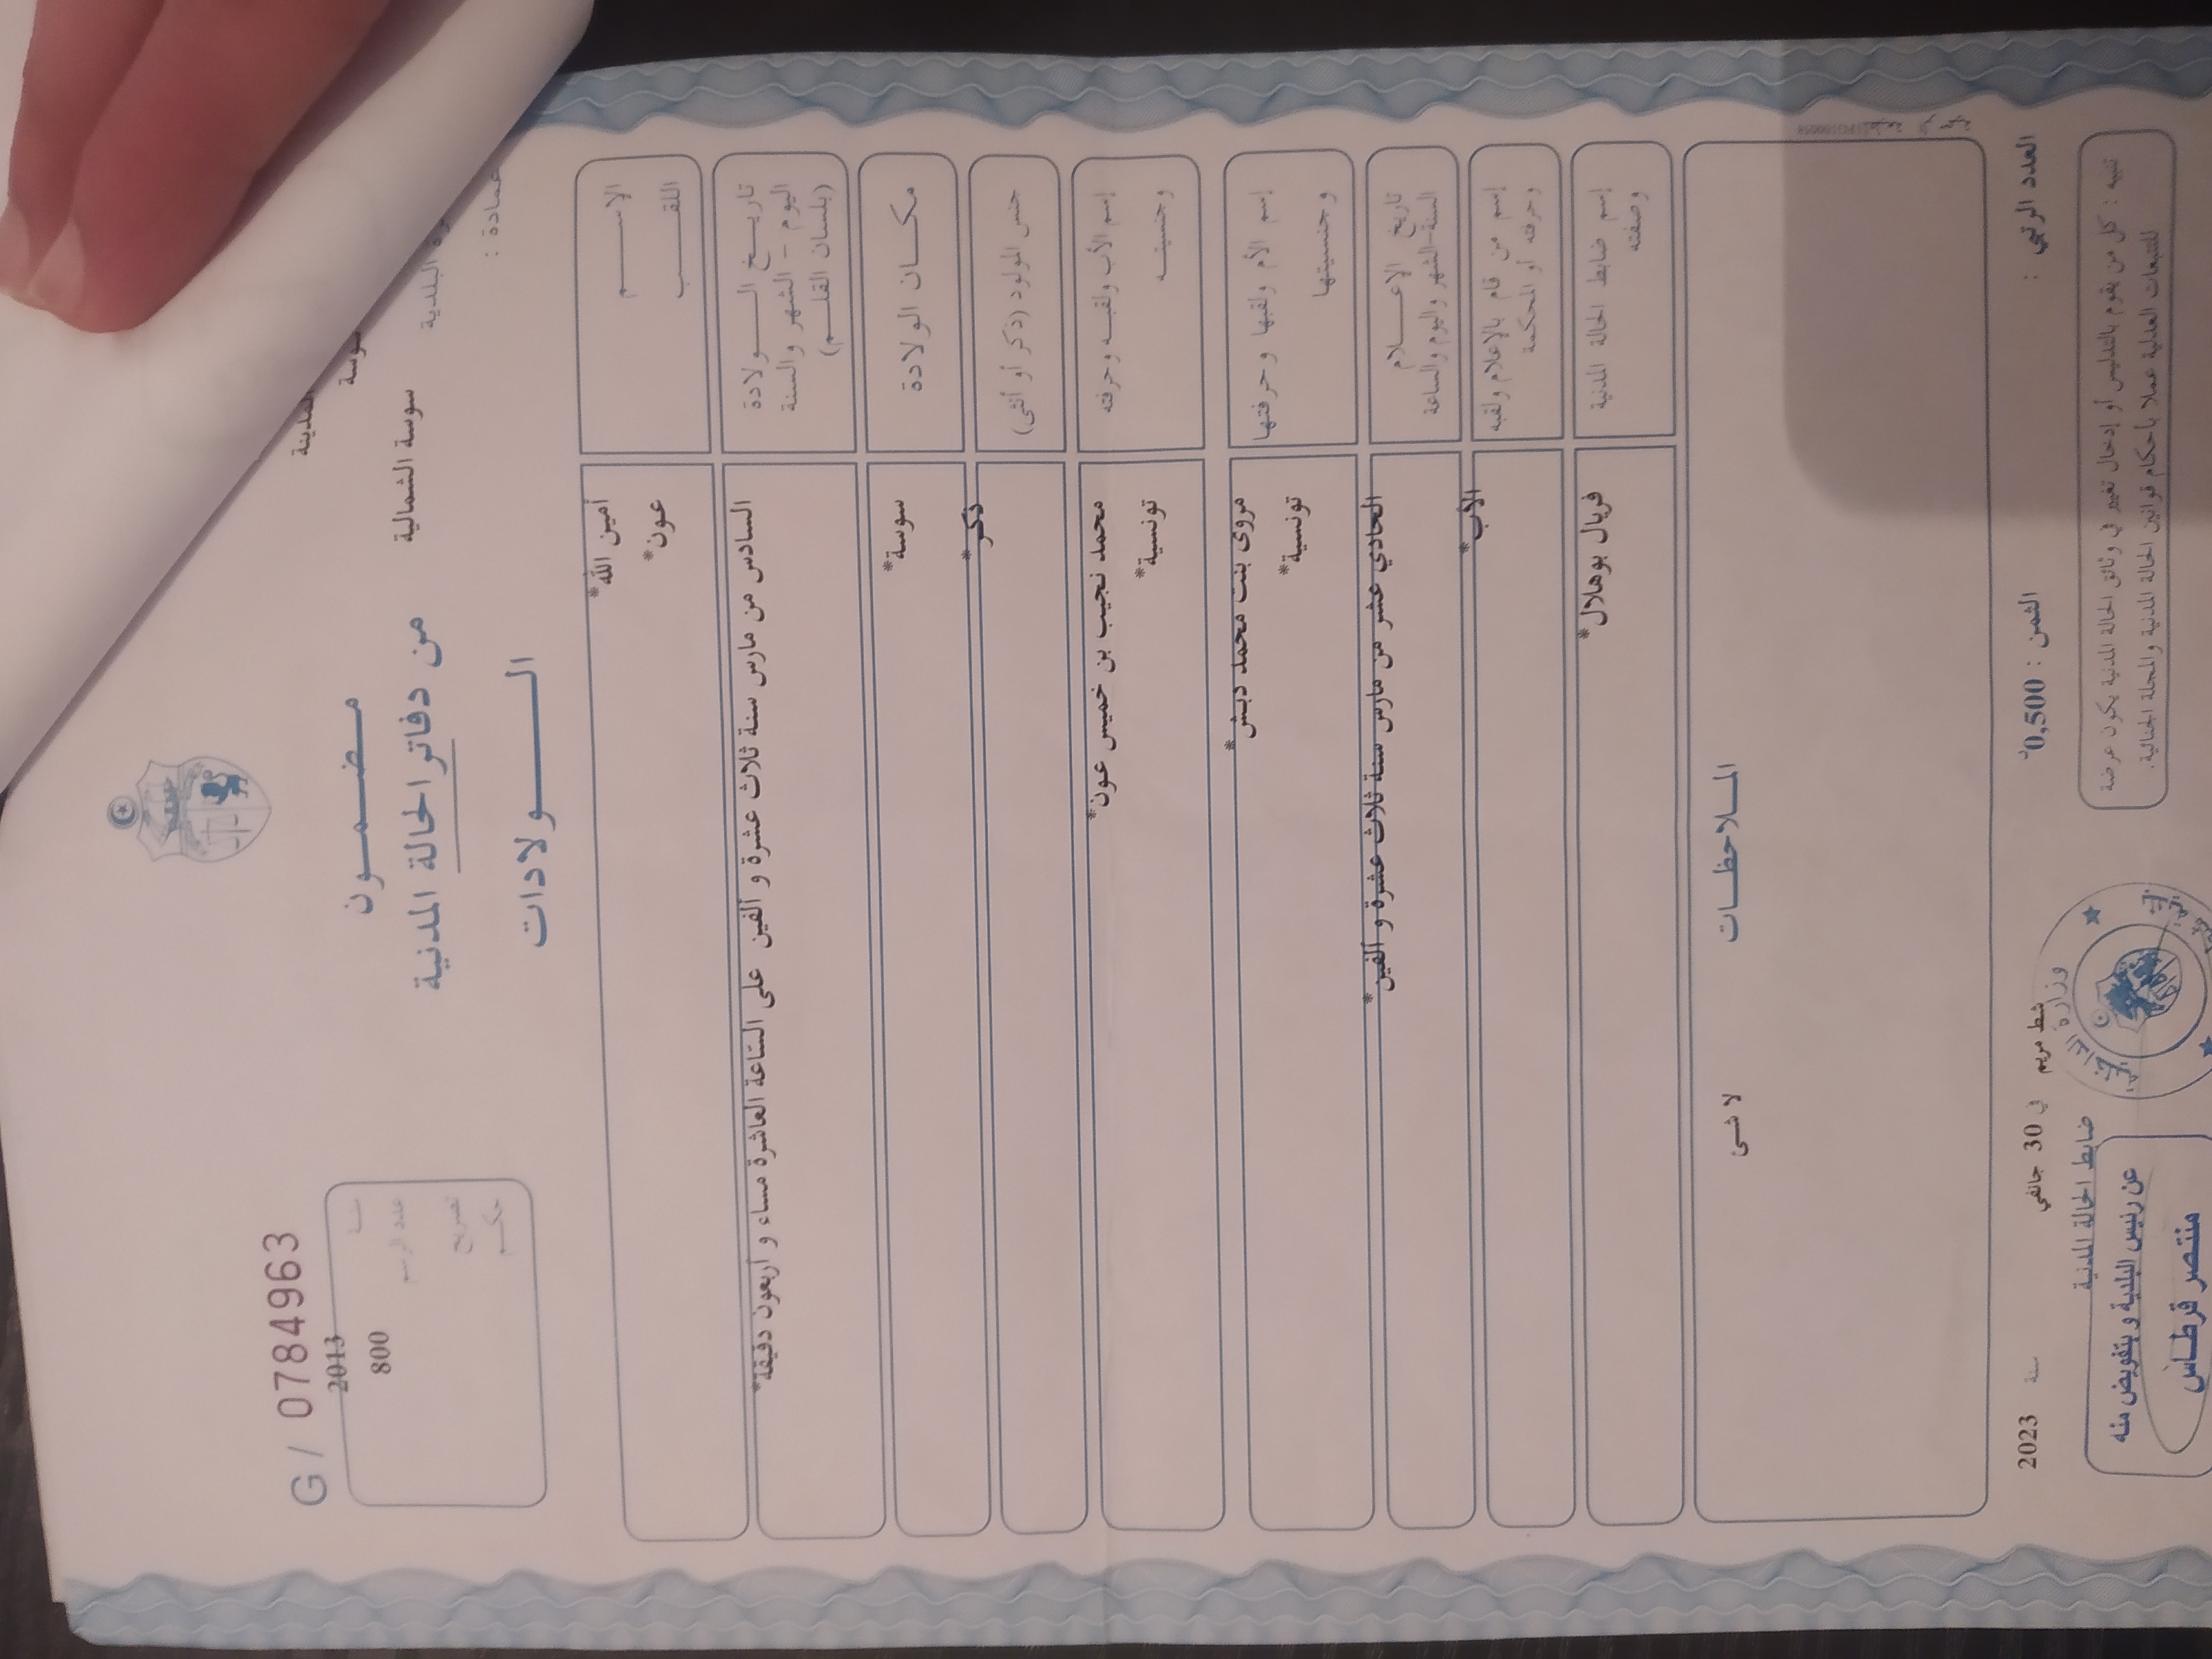 G / 0784963
سنة 2013
عدد الرسم 800
تصريح
حكم
مضمون
من دفاتر الحالة المدنية
الولادات
المدينة
سوسة
البلدية
سوسة الشمالية
عمادة :
الاسم
أمين الله*
اللقب
عون*
تاريخ الولادة
اليوم - الشهر والسنة
(بلسان القلم)
السادس من مارس سنة ثلاث عشرة و ألفين على الساعة العاشرة مساء و أربعون دقيقة*
مكان الولادة
سوسة*
جنس المولود (ذكر أو أنثى)
ذكر*
إسم الأب ولقبه وحرفته
محمد نجيب بن خميس عون*
وجنسيته
تونسية*
إسم الأم ولقبها وحرفتها
مروى بنت محمد دبش*
وجنسيتها
تونسية*
تاريخ الإعلام
السنة-الشهر واليوم والساعة
الحادي عشر من مارس سنة ثلاث عشرة و ألفين*
إسم من قام بالإعلام ولقبه
وحرفته أو المحكمة
الأب*
إسم ضابط الحالة المدنية
وصفته
فريال بوهلال*
الملاحظات
لا شى
العدد الرتبي :
الثمن : 0,500د
شط مريم في 30 جانفي سنة 2023
تنبيه : كل من يقوم بالتدليس أو إدخال تغيير في وثائق الحالة المدنية يكون عرضة
للتتبعات العدلية عملا بأحكام قوانين الحالة المدنية والمجلة الجنائية.
ضابط الحالة المدنية
عن رئيس البلدية و بتفويض منه
منتصر قرطاس
وزارة